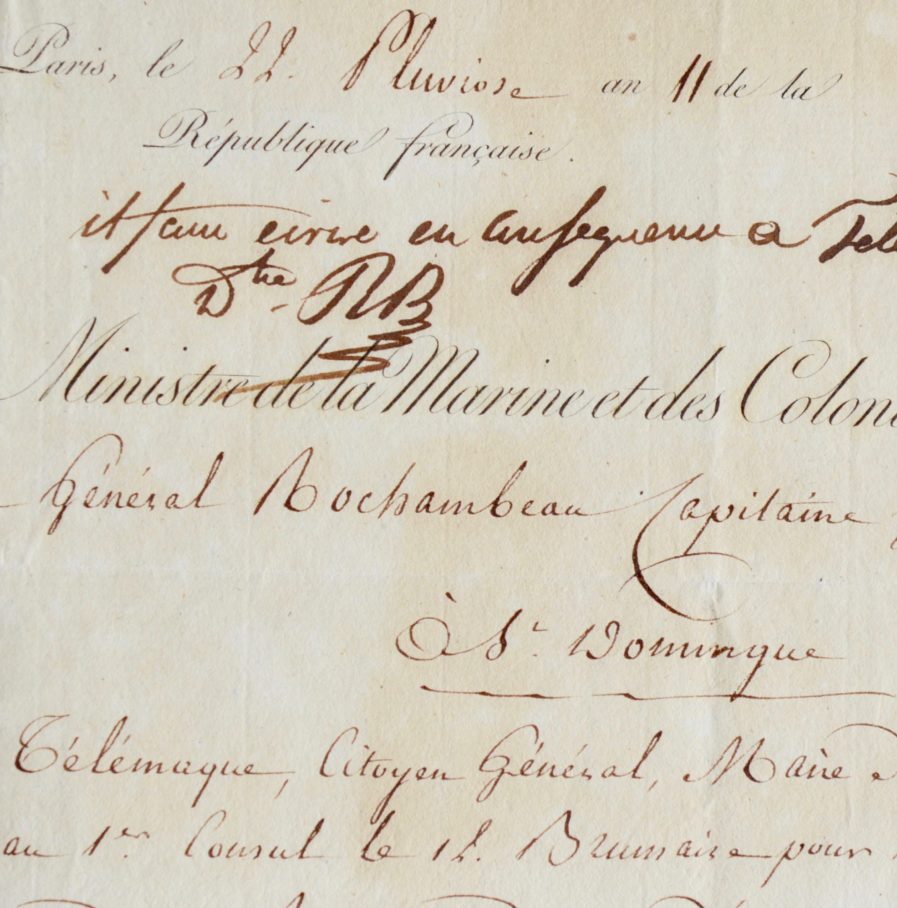 Paris, le 22. Pluviose an 11 de la
République française.
il faut ecrire en consequence a Tele
Dthe. RB
Ministre de la Marine et des Colon
Général Rochambeau Capitaine
À St. Domingue
Télémaque, Citoyen Général, Maire
au 1er. Consul le 12. Brumaire pour